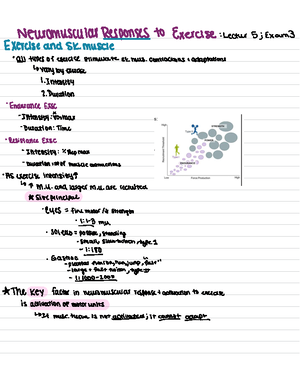 Neuromuscular Responses to Exercise : Lecture 5 ; Exam 3
Exercise and Sk. muscle
• all types of exercise promote sk. mus. contractions + adaptations
↳ vary by
1. Intensity
2. Duration
• Endurance Exec
- Intensity:
- Duration: Time
• Resistance Exec
- Intensity: % rep max
- Duration: # of muscle contractions
• As exercise intensity↑
↳ ↑ M.U. and larger M.U. are recruited
★ Size principal
• Eyes = fine motor / ↓ strength
• 1:1-10 mu
• Soleus = posture, standing
- Small, slow twitch, type 1
- 1:180
• Gastroc
- large + fast
- 1:1000-2000
★ The key factor in neuromuscular response + activation to exercise
is activation of motor units
↳ If musc tissue is not activated; it cannot adapt